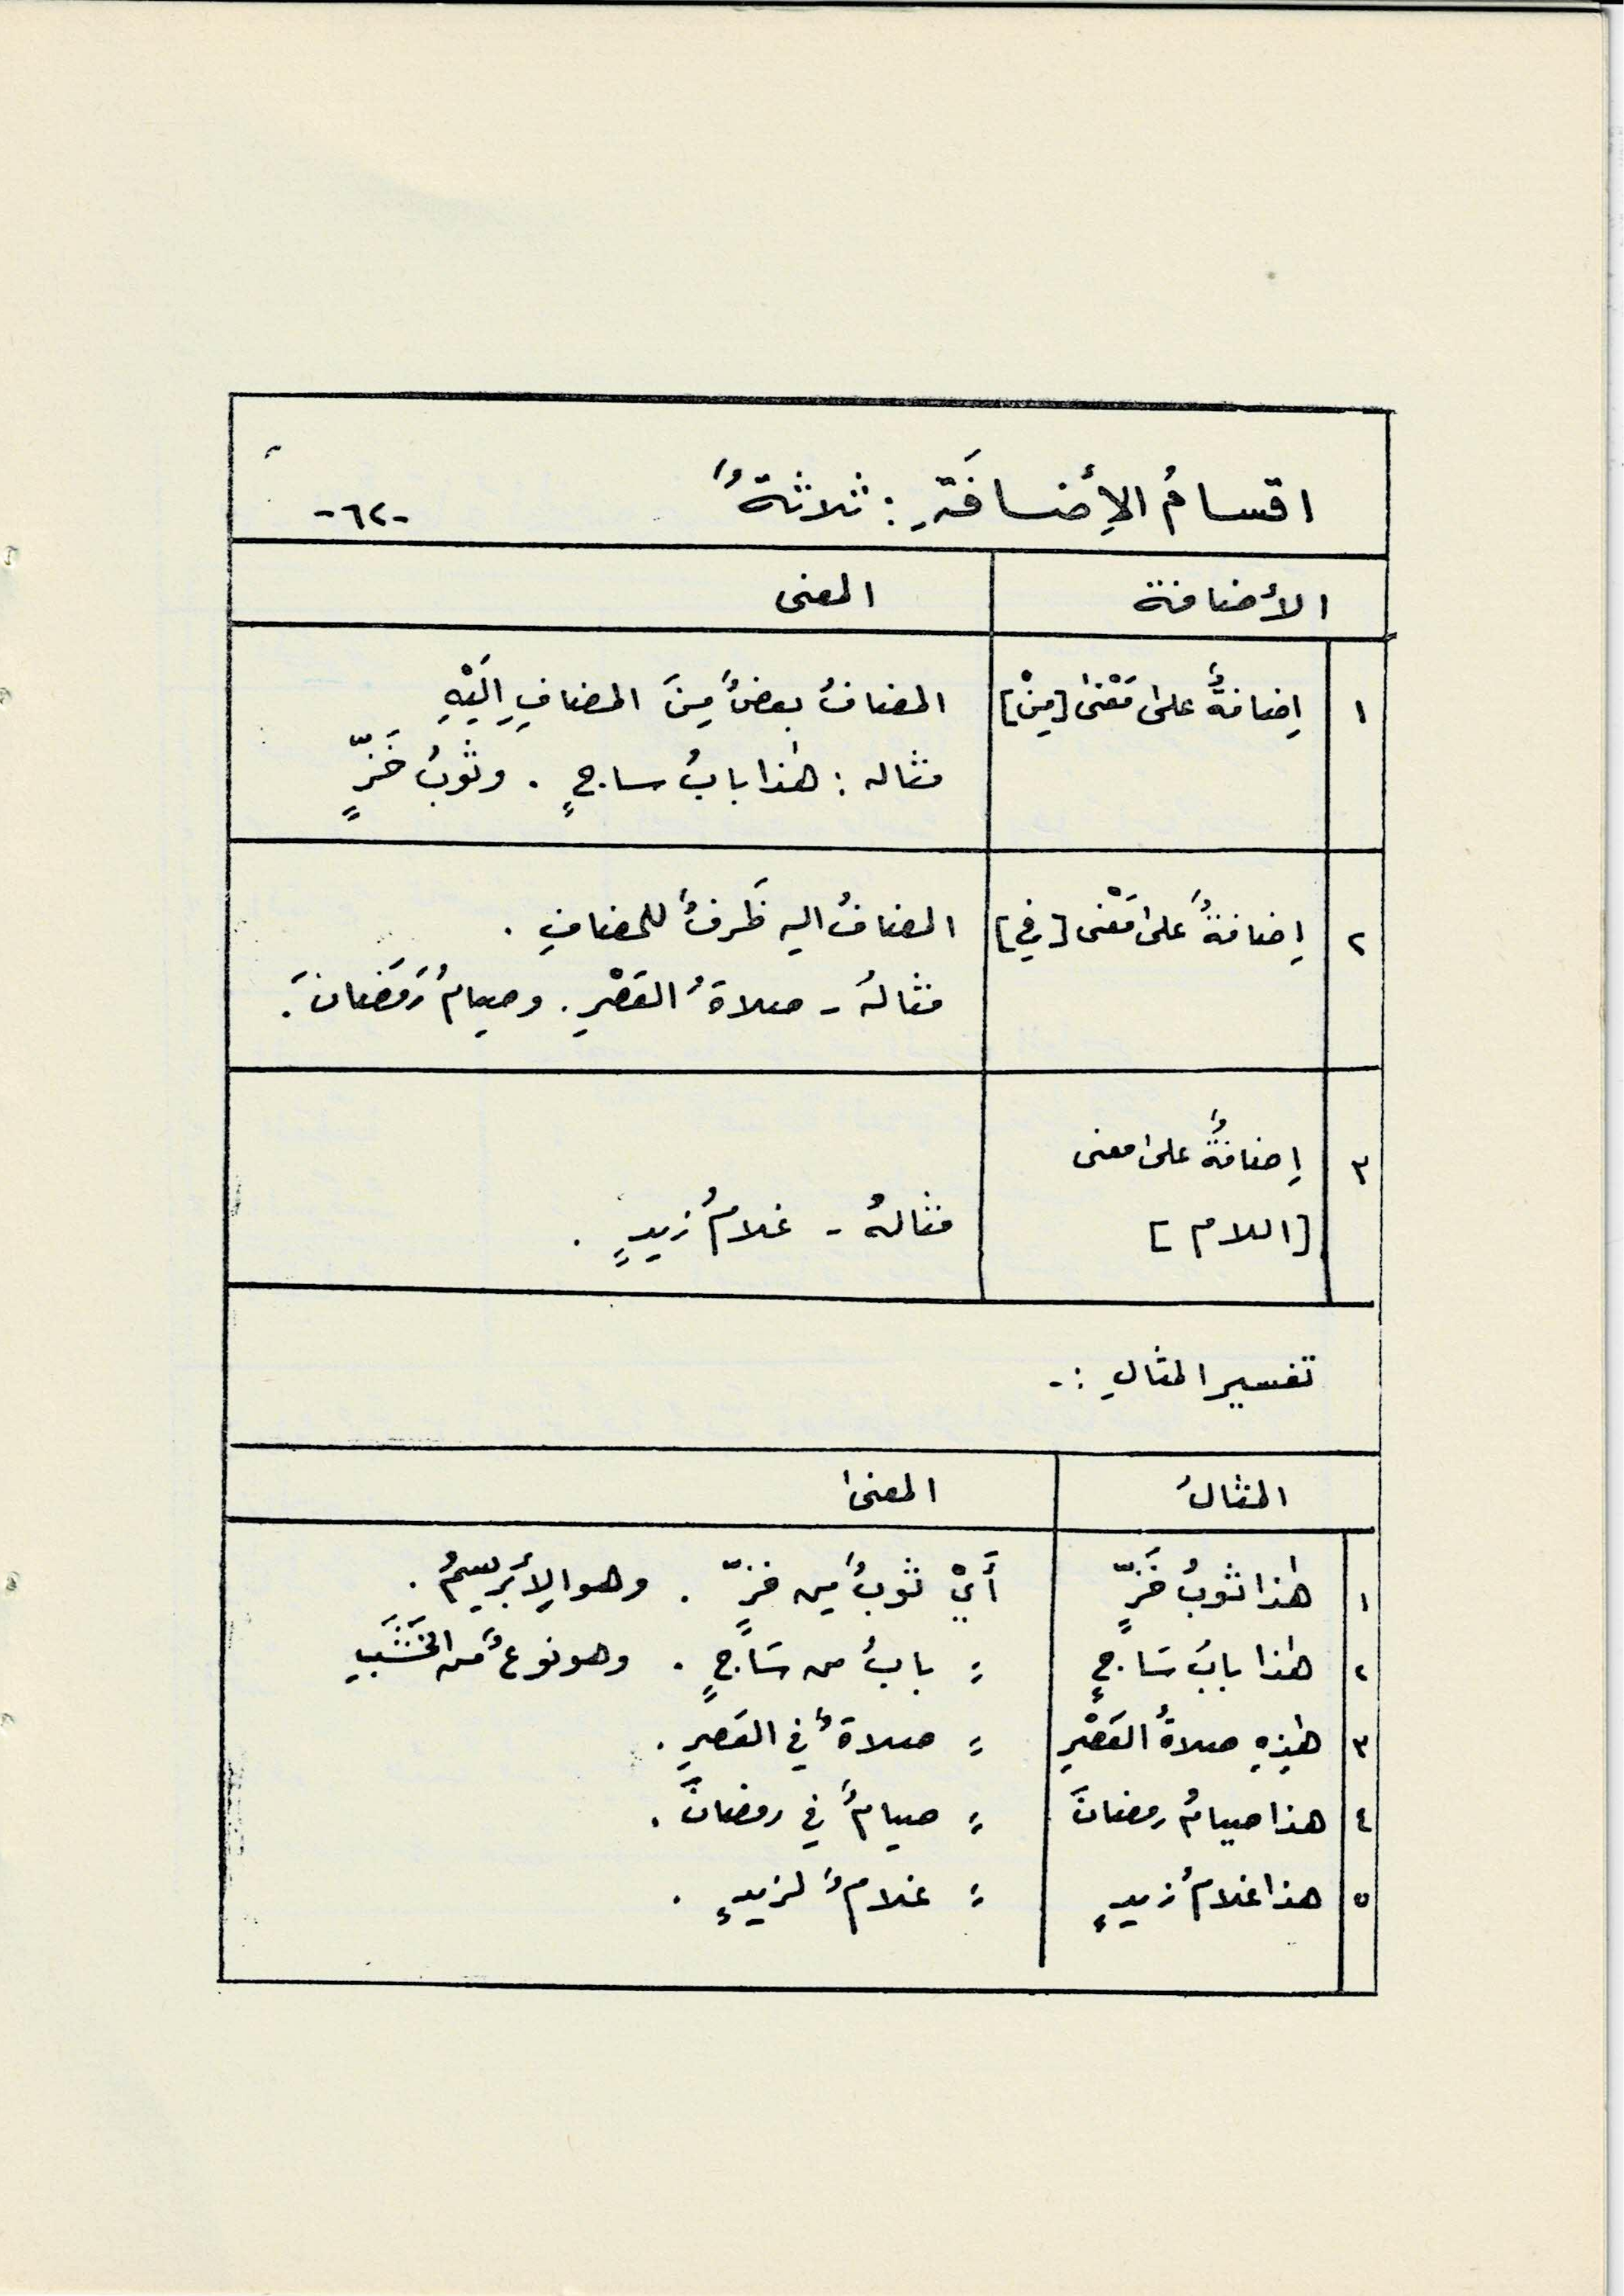 اقسامُ الإِضافَةِ : ثلاثةٌ
-٦٢-
الأضافة المعنى
١ إِضافةٌ على مَعْنى [مِنْ] المضافُ بعضٌ مِنَ المضافِ إِلَيْهِ
مثاله : هذا بابُ ساجٍ . وثوبُ خَزٍّ
٢ إِضافةٌ على مَعْنى [في] المضافُ اليه ظَرفٌ للمضافِ .
مثالهُ - صلاةُ العَصْرِ . وصيامُ رَمَضَانَ .
٣ إِضافةٌ على معنى
[اللام] مثالهُ - غلامُ زيدٍ .
تفسير المثالِ :-
المثالُ المعنى
١ هذا ثوبُ خَزٍّ أَيْ ثوبٌ مِن خزٍّ . وهو الإِبَرِيسمُ .
٢ هذا بابُ سَاجٍ = بابٌ من سَاجٍ . وهو نوعٌ مَن الخَشَبِ
٣ هذِهِ صلاةُ العَصْرِ = صلاةٌ في العَصرِ .
٤ هذا صيامُ رمضانَ = صيامٌ في رمضانَ .
٥ هذا غلامُ زيدٍ = غلامٌ لزيدٍ .